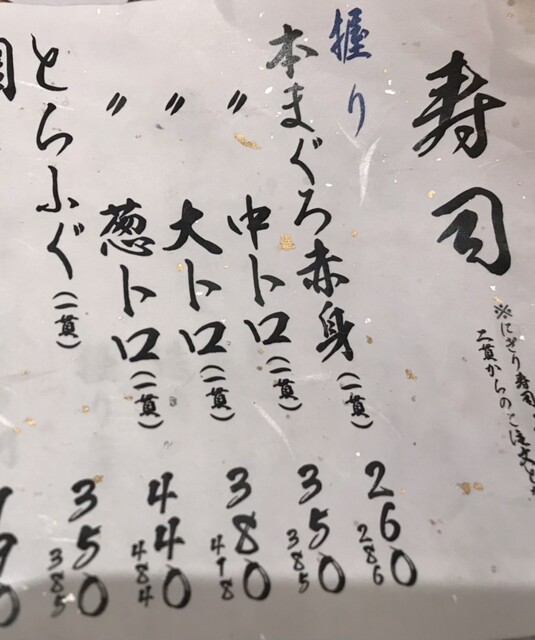 寿司
※にぎり寿司
二貫からのご注文とな
握り
本まぐろ赤身(一貫) 260 286
〃 中トロ(一貫) 350 385
〃 大トロ(一貫) 380 418
〃 葱トロ(一貫) 440 484
とらふぐ(一貫) 350 385